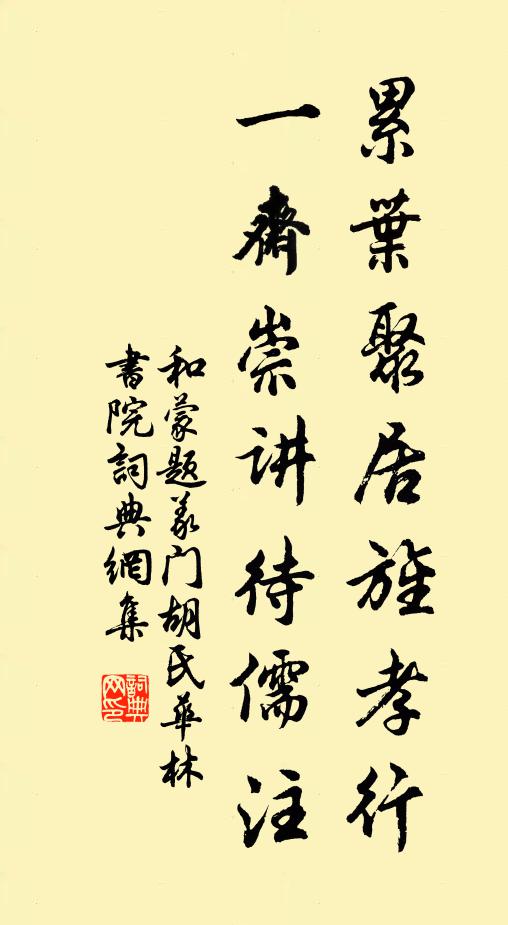 累葉聚居旌孝行
一齋崇讲待儒注
和蒙题义门胡氏華林
書院詞典網集
詞典网印